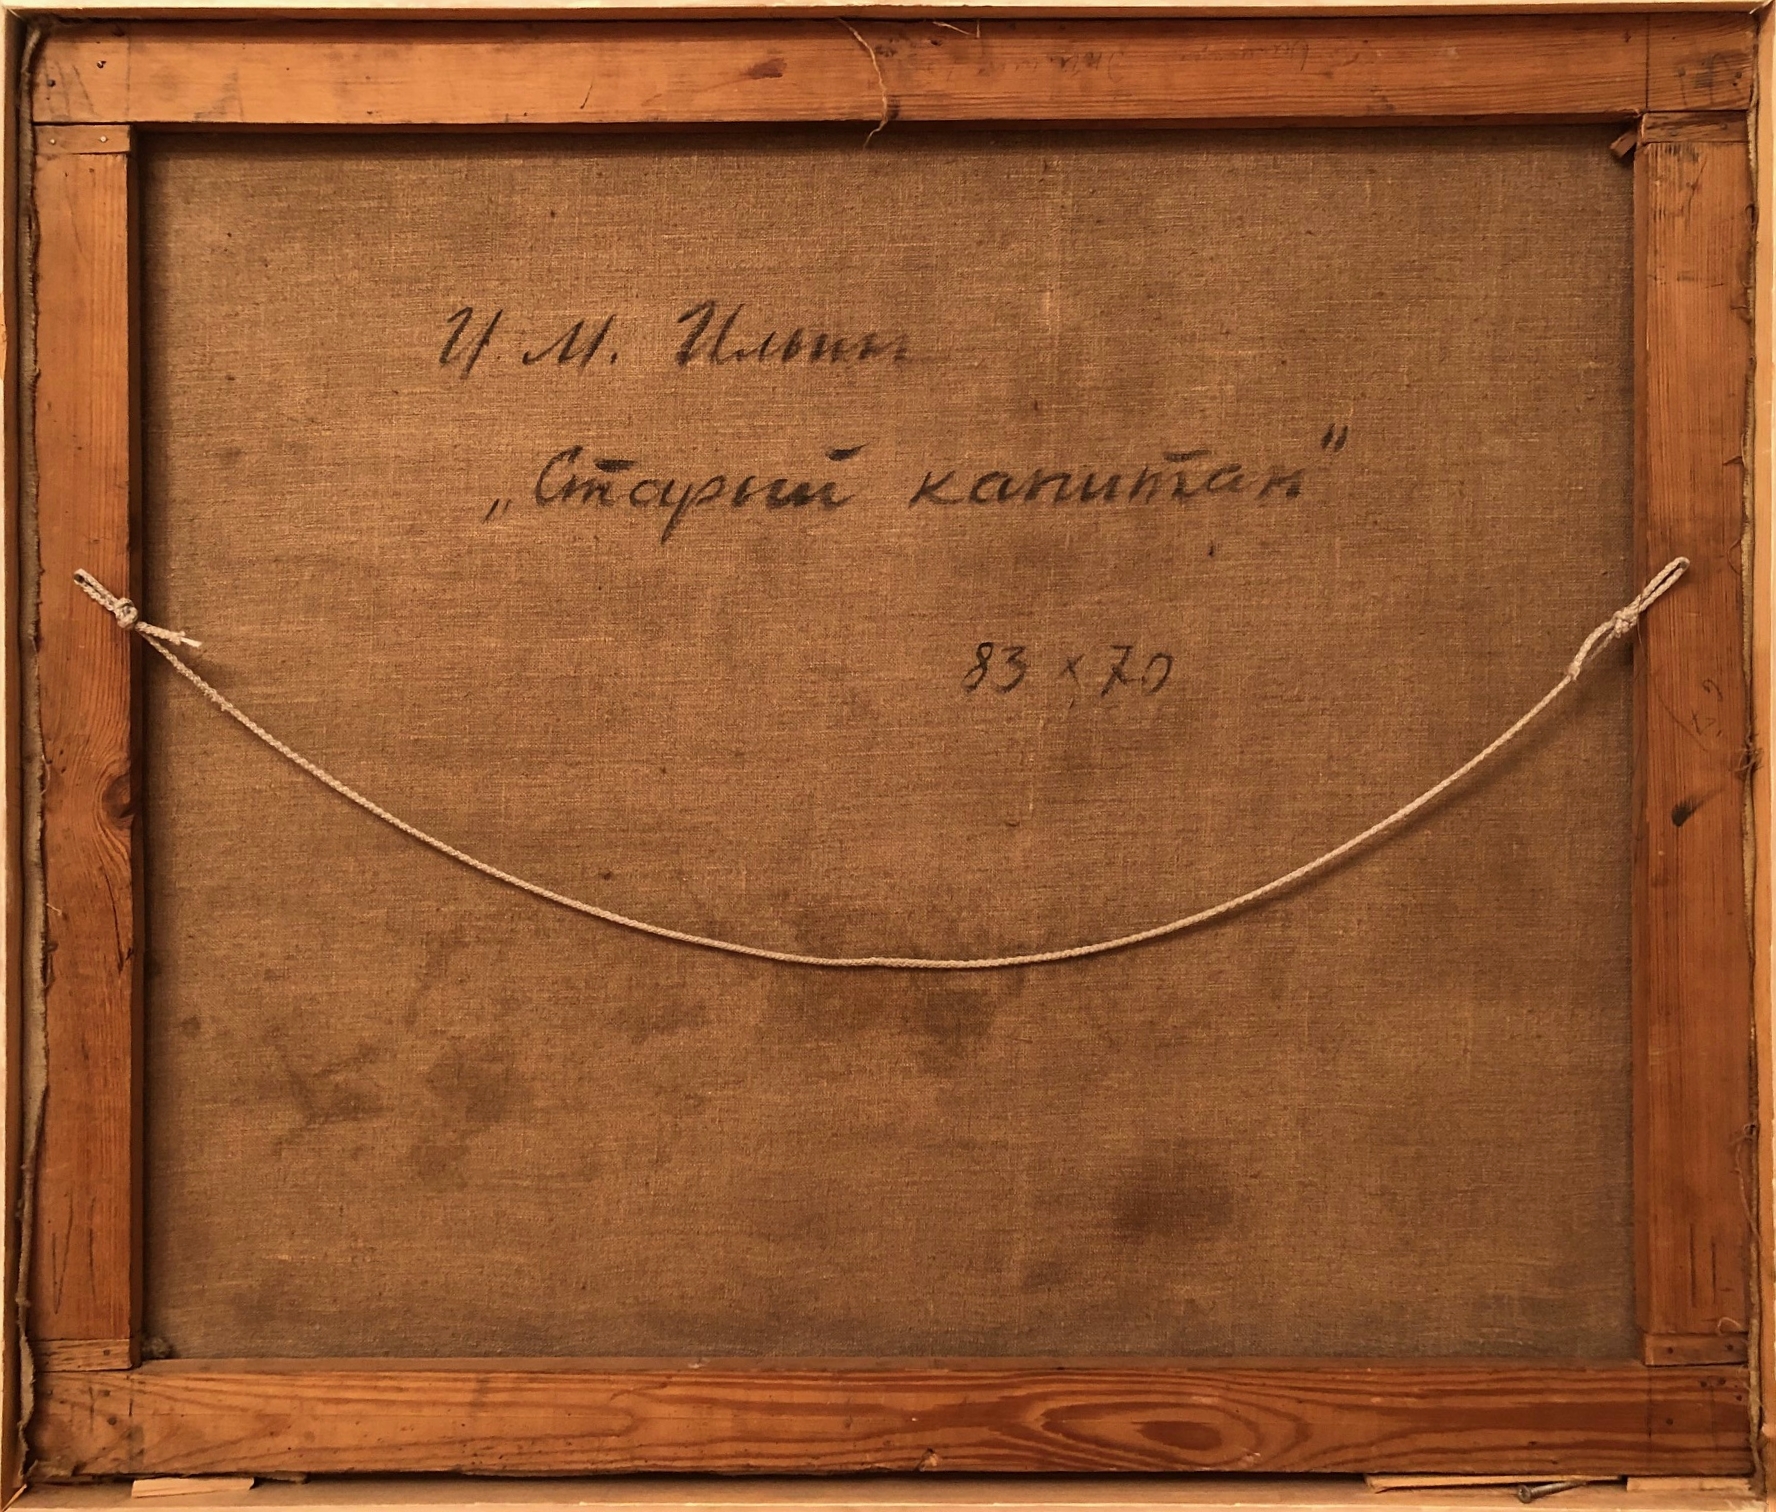 И. М. Ильин
„Старый капитан"
83 x 70